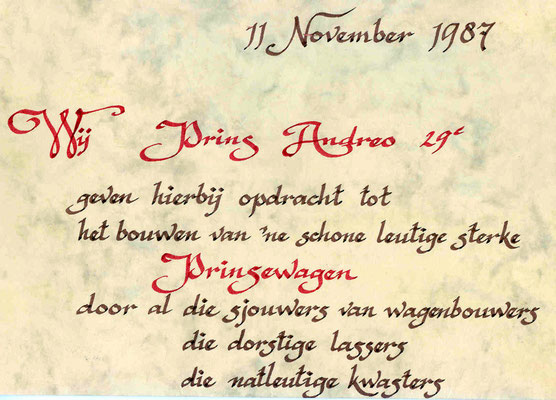 11 November 1987
Wij Prins Andreo 29e
geven hierbij opdracht tot
het bouwen van 'ne schone leutige sterke
Prinsewagen
door al die sjouwers van wagenbouwers
die dorstige lassers
die natleutige kwasters